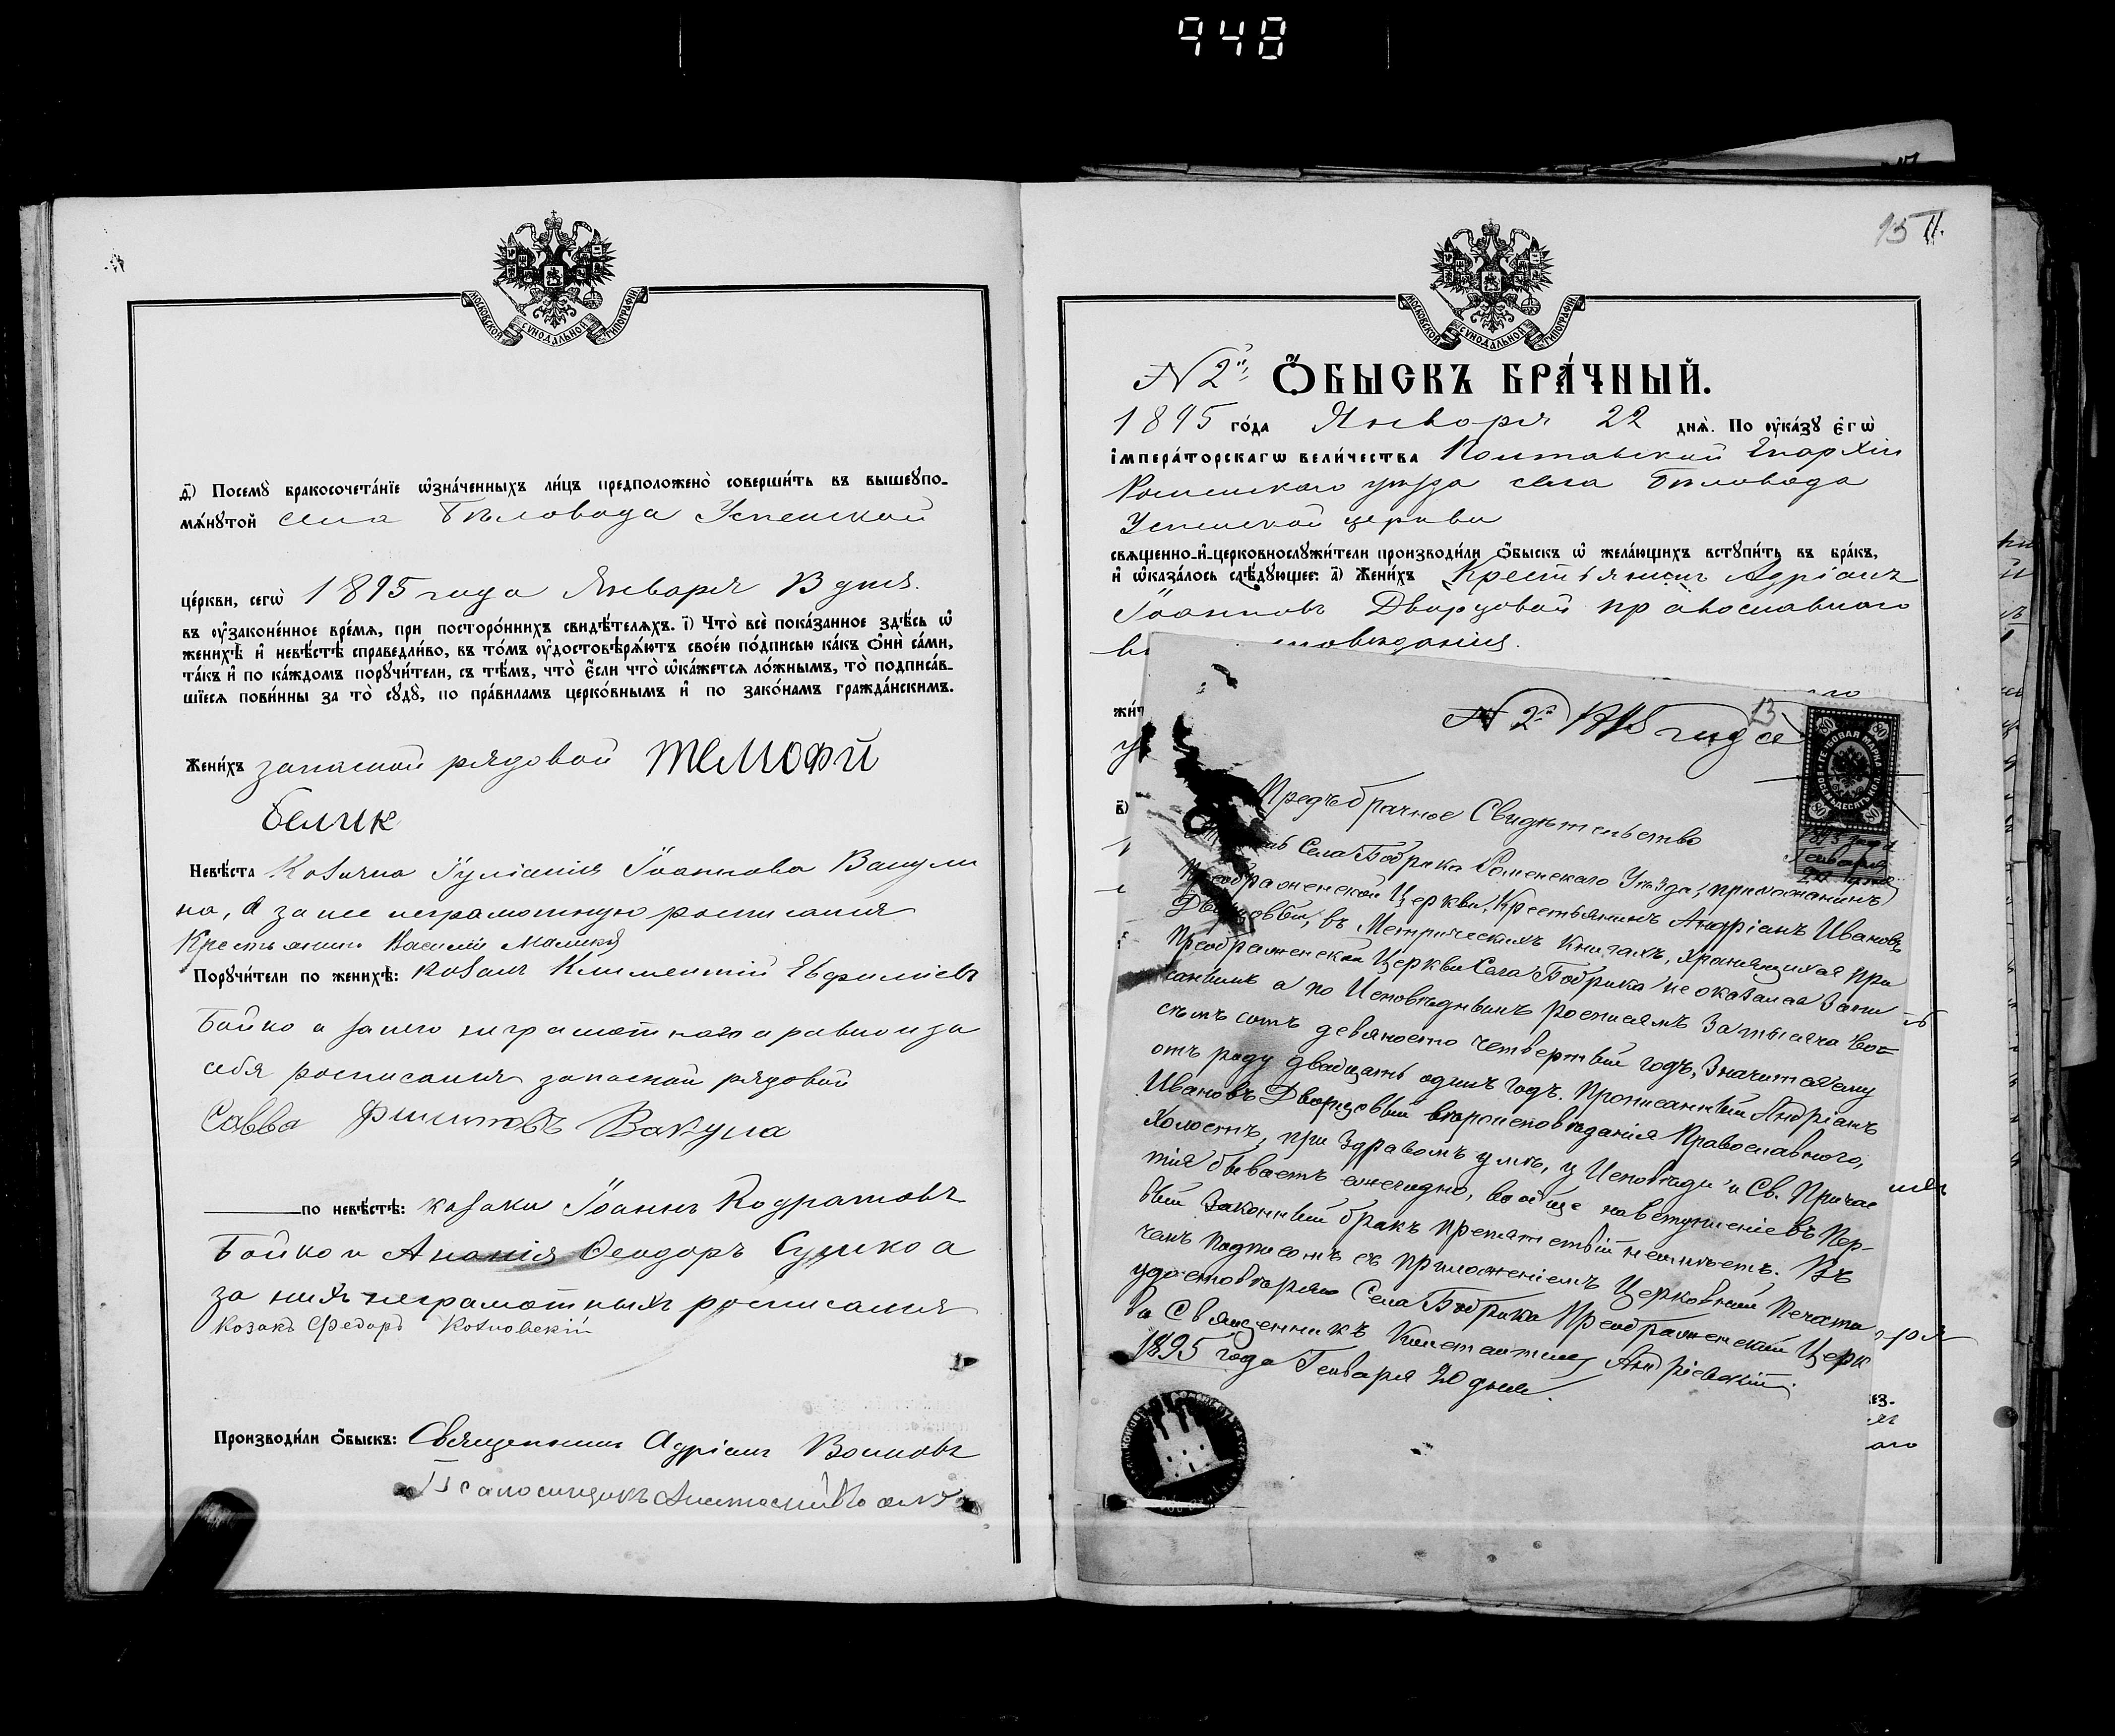 948
МОСКОВСКОЙ СѴНОДАЛЬНОЙ ТИПОГРАФІИ
д҃і) Посемꙋ̀ бракосочета́нїе ѡ҆зна́ченныхъ ли́цъ предположено̀ соверши́ть въ вышеꙋпо-
мѧ́нꙋтой села Бѣловода Успенской
це́ркви, сегѡ̀ 1895 года Января 13 дня.
въ ᲂу҆законе́нное вре́мѧ, при посторо́ннихъ свидѣ́телѧхъ. і҃) Что̀ всѐ пока́занное здѣ́сь ѡ҆
женихѣ̀ и҆ невѣ́стѣ справедли́во, въ то́мъ ᲂу҆достовѣрѧ́ютъ свое́ю по́дписью ка́къ ѻ҆нѝ са́ми,
та́къ и҆ по ка́ждомъ порꙋчи́тели, съ тѣ́мъ, что̀ є҆́сли что̀ ѡ҆ка́жетсѧ ло́жнымъ, то̀ подписа́в-
шїесѧ пови́нны за то̀ сꙋдꙋ̀, по пра́виламъ церко́внымъ и҆ по зако́намъ гражда́нскимъ.
Жени́хъ запасной рядовой темофй
белик
Невѣ́ста Козачка Іуліанія Іоаннова Вакули
на, а за нее неграмотную росписался
Крестьянинъ Василій
Порꙋчи́тели по женихѣ̀: козакъ Климентій Евфиміевъ
Бойко а за него неграмотнаго а равно и за
себя росписался запасной рядовой
Савва Филиповъ Вакула
по невѣ́стѣ: козаки Іоаннъ Кодратовъ
Бойко и Ананія Ѳеодоръ Сушко а
за нихъ неграмотныхъ росписался
козакъ Федоръ Козловскій
Производи́ли ѻ҆́быскъ: Священникъ Адріанъ Волковъ
Псаломщикъ
15 11.
МОСКОВСКОЙ СѴНОДАЛЬНОЙ ТИПОГРАФІИ
N 2й Ѻ҆́БЫСКЪ БРА́ЧНЫЙ.
1895 го́да Января 22 днѧ̀. По ᲂу҆ка́зꙋ є҆гѡ̀
і҆мпера́торскагѡ вели́чества Полтавской Епархіи
Роменскаго уѣзда села Бѣловода
Успенской церкви
свѧщенно-и҆-церковнослꙋжи́тели производи́ли ѻ҆́быскъ ѡ҆ жела́ющихъ встꙋпи́ть въ бра́къ,
и҆ ѡ҆каза́лось слѣ́дꙋющее: а҃) Жени́хъ Крестьянинъ Адріанъ
Іоанновъ Дворцовой православнаго
N 2й 1895 года 13
ГЕРБОВАЯ МАРКА
ВОСЕМЬДЕСЯТЪ КОП.
80 80
80 80
1895 года
Генваря
20 дня
Предъбрачное Свидѣтельство
Села Бобрика Роменскаго Уѣзда, прихожанинъ
Преображенской Церкви, Крестьянинъ Андріанъ Ивановъ
Дворцовый, въ Метрическихъ Книгахъ, хранящихся При
Преображенской Церкви Села Бобрика не оказался Запи
саннымъ а по Исповѣднымъ росписямъ За тысяча вос
емъ сотъ девяносто четвертый годъ, Значится ему
отъ роду двадцать одинъ годъ. Прописанный Андріанъ
Ивановъ Дворцовый вѣроисповѣданія Православнаго,
Холостъ, при Здравомъ умѣ, у Исповѣди и Св. Причас
тія бываетъ ежегодно, вообще на вступленіе въ Пер-
вый Законный бракъ препятствій неимѣетъ. Въ
чемъ подписомъ съ приложеніемъ Церковной Печати
удостовѣряю Села Бобрика Преображенской Церк
ви Священникъ Константинъ Андріевскій
1895 года Генваря 20 дня.